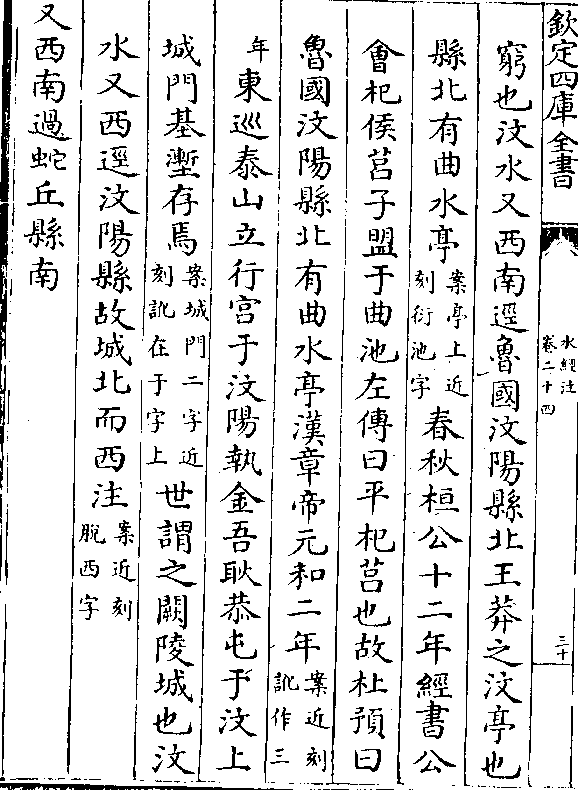 欽定四庫全書
水經注
卷二十四
三十
窮也汶水又西南逕魯國汶陽縣北王莽之汶亭也
縣北有曲水亭案亭上近刻衍池字春秋桓公十二年經書公
會杞侯莒子盟于曲池左傳曰平杞莒也故杜預曰
魯國汶陽縣北有曲水亭漢章帝元和二年案近刻訛作三
年東巡泰山立行宮于汶陽執金吾耿恭屯于汶上
城門基壍存焉案城門二字近刻訛在于字上世謂之闕陵城也汶
水又西逕汶陽縣故城北而西注案近刻脫西字
又西南過蛇丘縣南